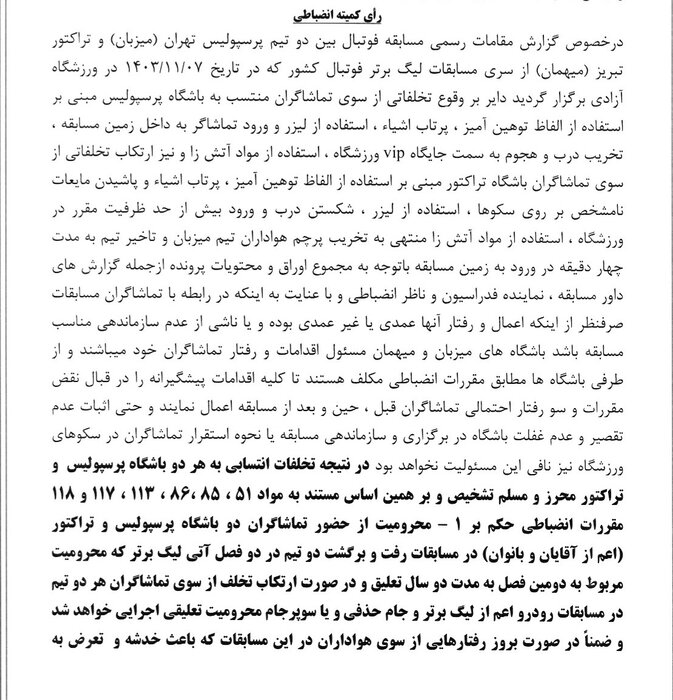 رأی کمیته انضباطی
درخصوص گزارش مقامات رسمی مسابقه فوتبال بین دو تیم پرسپولیس تهران (میزبان) و تراکتور
تبریز (میهمان) از سری مسابقات لیگ برتر فوتبال کشور که در تاریخ ۱۴۰۳/۱۱/۰۷ در ورزشگاه
آزادی برگزار گردید دایر بر وقوع تخلفاتی از سوی تماشاگران منتسب به باشگاه پرسپولیس مبنی بر
استفاده از الفاظ توهین آمیز ، پرتاب اشیاء ، استفاده از لیزر و ورود تماشاگر به داخل زمین مسابقه ،
تخریب درب و هجوم به سمت جایگاه vip ورزشگاه ، استفاده از مواد آتش زا و نیز ارتکاب تخلفاتی از
سوی تماشاگران باشگاه تراکتور مبنی بر استفاده از الفاظ توهین آمیز ، پرتاب اشیاء و پاشیدن مایعات
نامشخص بر روی سکوها ، استفاده از لیزر ، شکستن درب و ورود بیش از حد ظرفیت مقرر در
ورزشگاه ، استفاده از مواد آتش زا منتهی به تخریب پرچم هواداران تیم میزبان و تاخیر تیم به مدت
چهار دقیقه در ورود به زمین مسابقه باتوجه به مجموع اوراق و محتویات پرونده ازجمله گزارش های
داور مسابقه ، نماینده فدراسیون و ناظر انضباطی و با عنایت به اینکه در رابطه با تماشاگران مسابقات
صرفنظر از اینکه اعمال و رفتار آنها عمدی یا غیر عمدی بوده و یا ناشی از عدم سازماندهی مناسب
مسابقه باشد باشگاه های میزبان و میهمان مسئول اقدامات و رفتار تماشاگران خود میباشند و از
طرفی باشگاه ها مطابق مقررات انضباطی مکلف هستند تا کلیه اقدامات پیشگیرانه را در قبال نقض
مقررات و سو رفتار احتمالی تماشاگران قبل ، حین و بعد از مسابقه اعمال نمایند و حتی اثبات عدم
تقصیر و عدم غفلت باشگاه در برگزاری و سازماندهی مسابقه یا نحوه استقرار تماشاگران در سکوهای
ورزشگاه نیز نافی این مسئولیت نخواهد بود در نتیجه تخلفات انتسابی به هر دو باشگاه پرسپولیس و
تراکتور محرز و مسلم تشخیص و بر همین اساس مستند به مواد ۵۱ ، ۸۵ ،۸۶ ، ۱۱۳ ، ۱۱۷ و ۱۱۸
مقررات انضباطی حکم بر ۱ – محرومیت از حضور تماشاگران دو باشگاه پرسپولیس و تراکتور
(اعم از آقایان و بانوان) در مسابقات رفت و برگشت دو تیم در دو فصل آتی لیگ برتر که محرومیت
مربوط به دومین فصل به مدت دو سال تعلیق و در صورت ارتکاب تخلف از سوی تماشاگران هر دو تیم
در مسابقات رودرو اعم از لیگ برتر و جام حذفی و یا سوپرجام محرومیت تعلیقی اجرایی خواهد شد
و ضمناً در صورت بروز رفتارهایی از سوی هواداران در این مسابقات که باعث خدشه و تعرض به